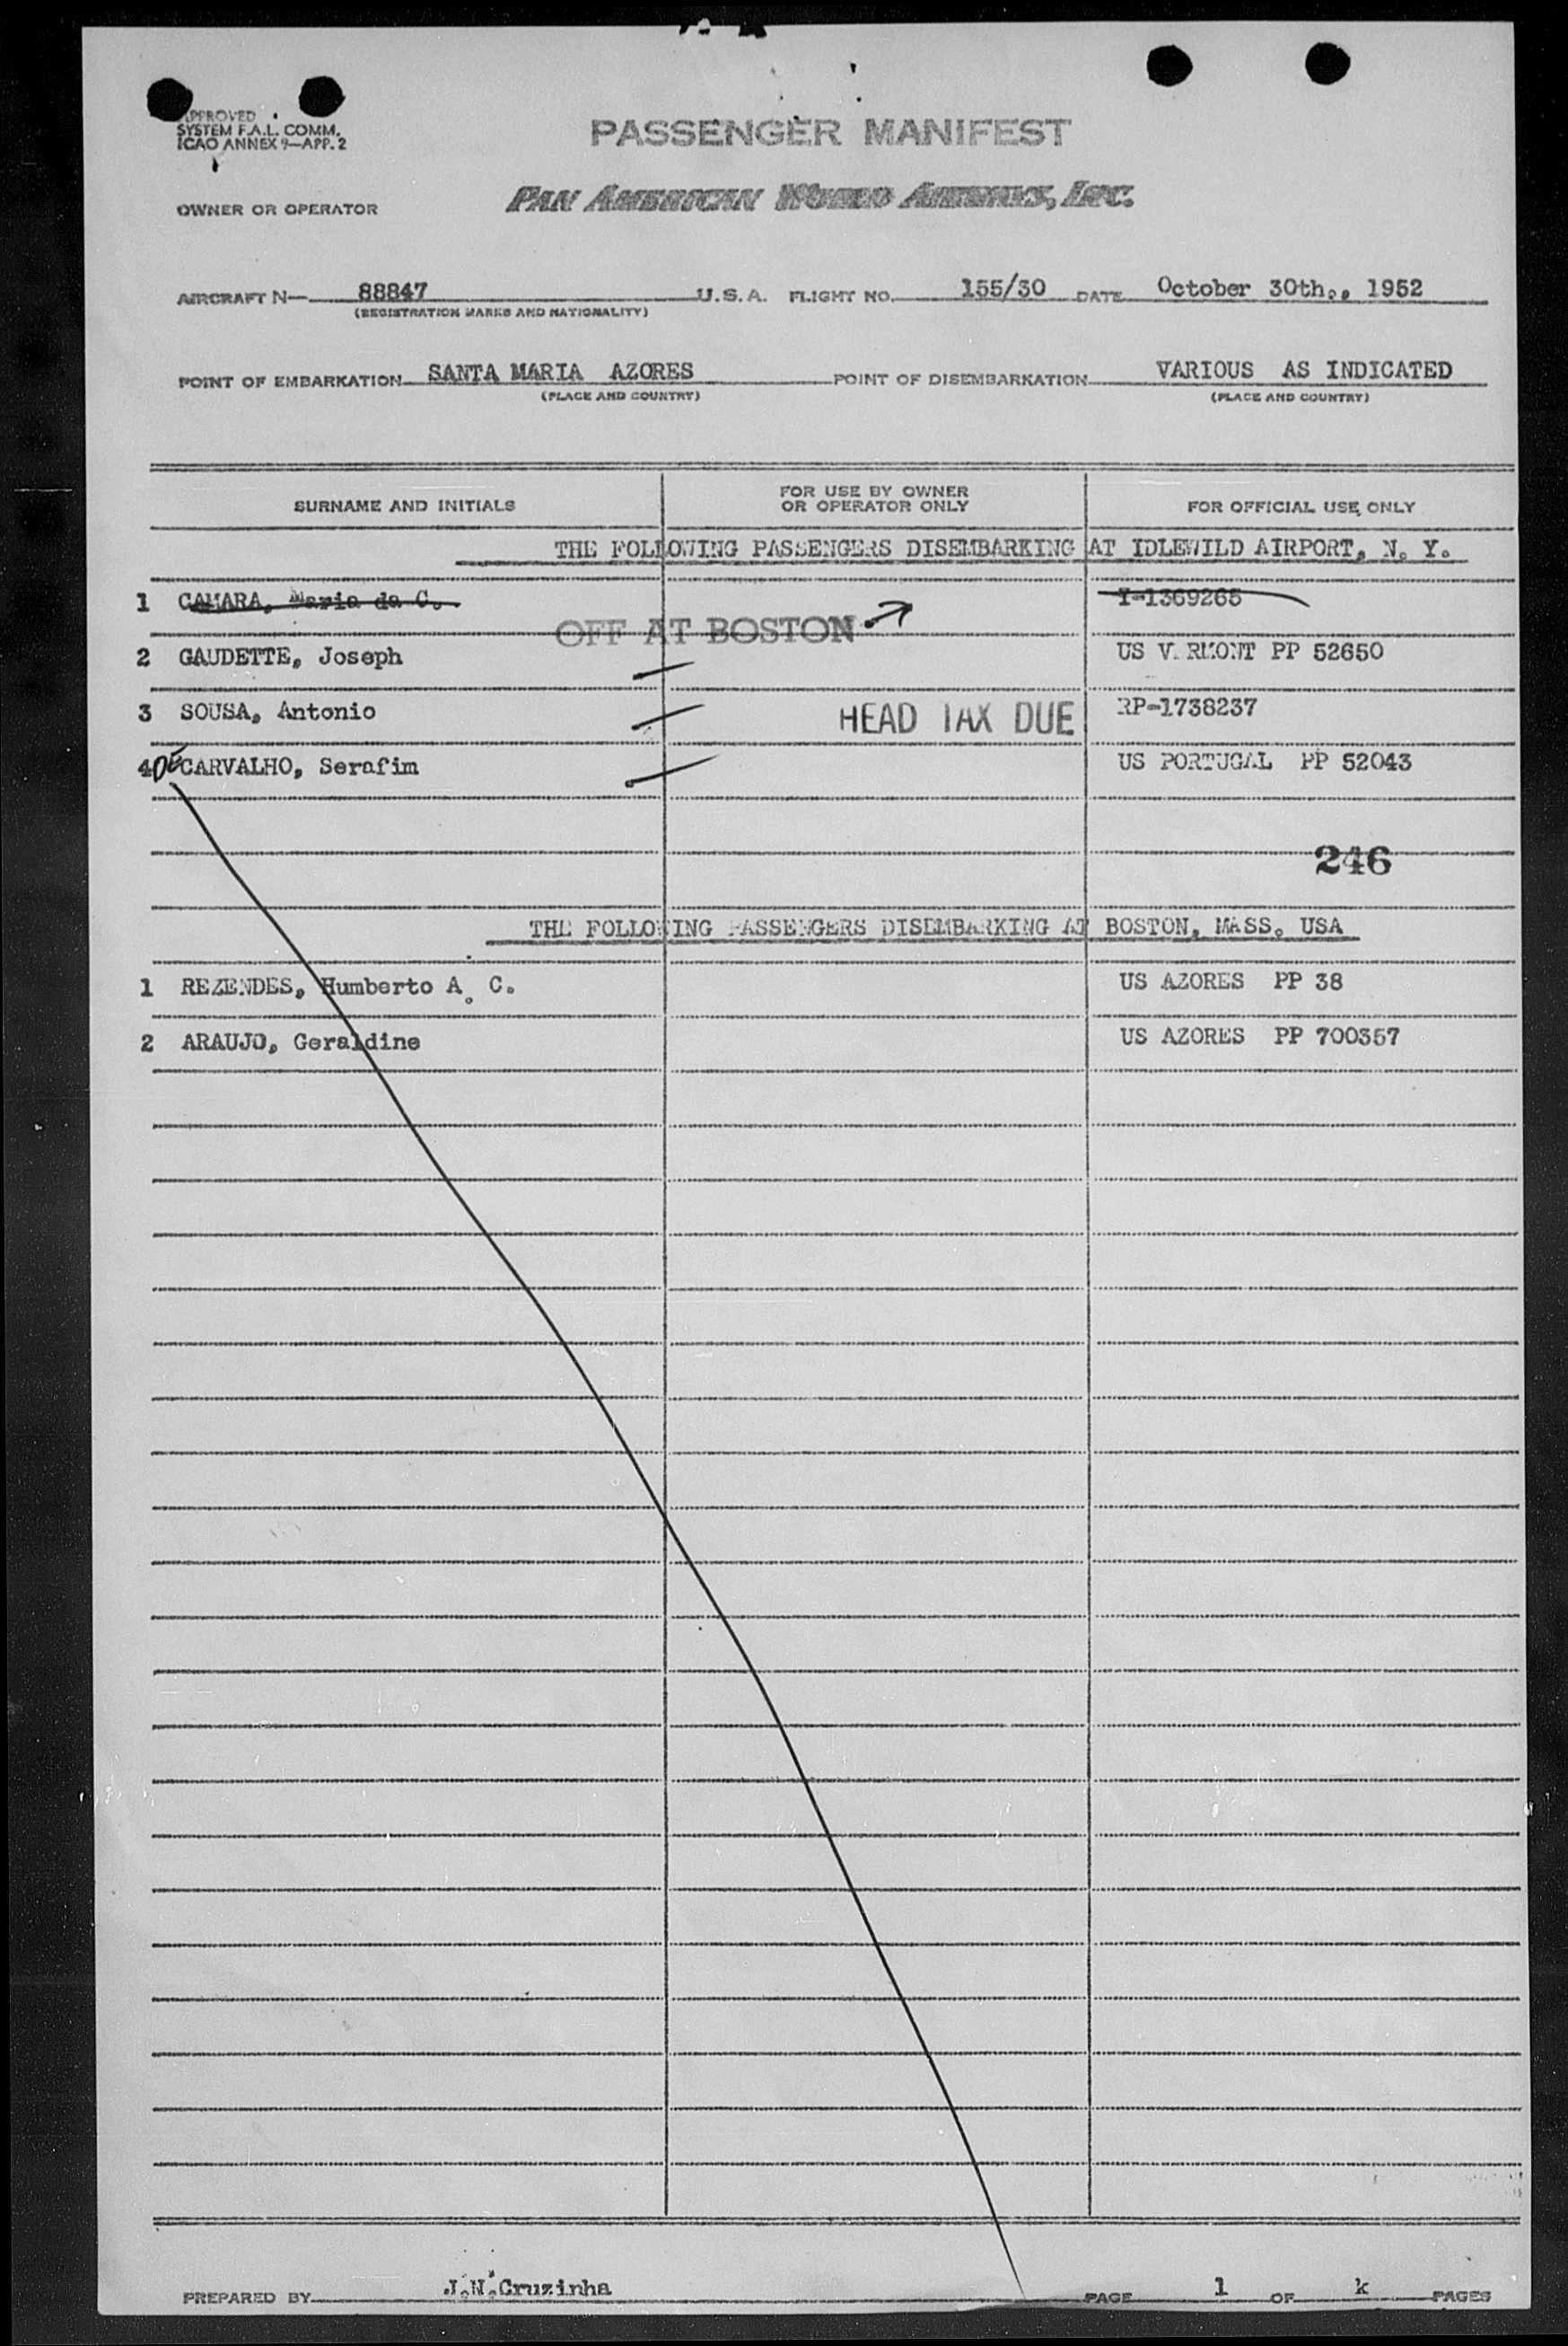 APPROVED
SYSTEM F.A.L. COMM.
ICAO ANNEX 9—APP. 2
PASSENGER MANIFEST
OWNER OR OPERATOR PAN AMERICAN WORLD AIRWAYS, INC.
AIRCRAFT N— 88847 U.S.A. FLIGHT NO. 155/30 DATE October 30th., 1952
(REGISTRATION MARKS AND NATIONALITY)
POINT OF EMBARKATION SANTA MARIA AZORES POINT OF DISEMBARKATION VARIOUS AS INDICATED
(PLACE AND COUNTRY) (PLACE AND COUNTRY)
SURNAME AND INITIALS FOR USE BY OWNER OR OPERATOR ONLY FOR OFFICIAL USE ONLY
THE FOLLOWING PASSENGERS DISEMBARKING AT IDLEWILD AIRPORT, N. Y.
1 CAMARA, Maria da C. I-1369265
OFF AT BOSTON
2 GAUDETTE, Joseph US V. RMONT PP 52650
3 SOUSA, Antonio HEAD TAX DUE RP-1738237
4 DE CARVALHO, Serafim US PORTUGAL PP 52043
246
THE FOLLOWING PASSENGERS DISEMBARKING AT BOSTON, MASS. USA
1 REZENDES, Humberto A. C. US AZORES PP 38
2 ARAUJO, Geraldine US AZORES PP 700357
PREPARED BY J.N.Cruzinha PAGE 1 OF k PAGES